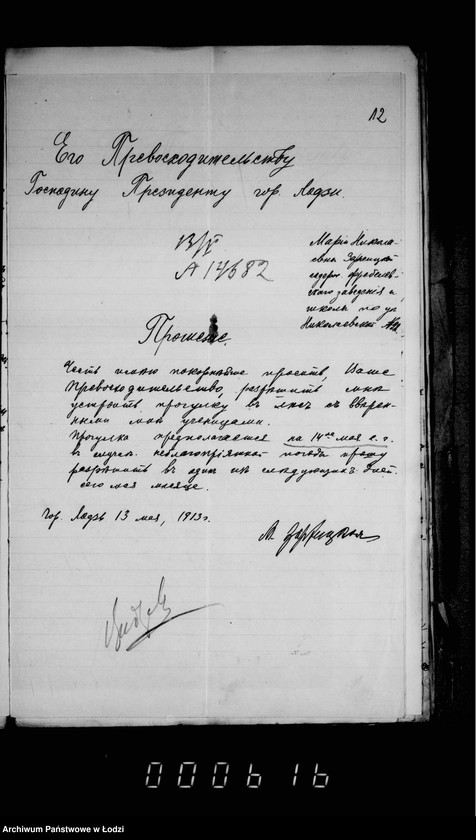 12
Его Превосходительству
Господину Президенту гор. Лодзи.
13/V
А 14682
Маріи Никола-
евны Зарицкой
содерж. фребелев-
скаго заведенія и
школы по ул
Николаевской
Прошеніе.
Честь имѣю покорнѣйше просить, Ваше
Превосходительство, разрѣшить мнѣ
устроить прогулку въ лѣсъ съ ввѣрен-
ными мнѣ ученицами.
Прогулка предполагается на 14ое мая с. г.
въ случ. неблагопріятной погоды прошу
разрѣшить въ одинъ изъ слѣдующихъ дней
сего мая мѣсяца.
Гор. Лодзь 13 мая, 1913 г.
М Зарицкая
000616
Archiwum Państwowe w Łodzi